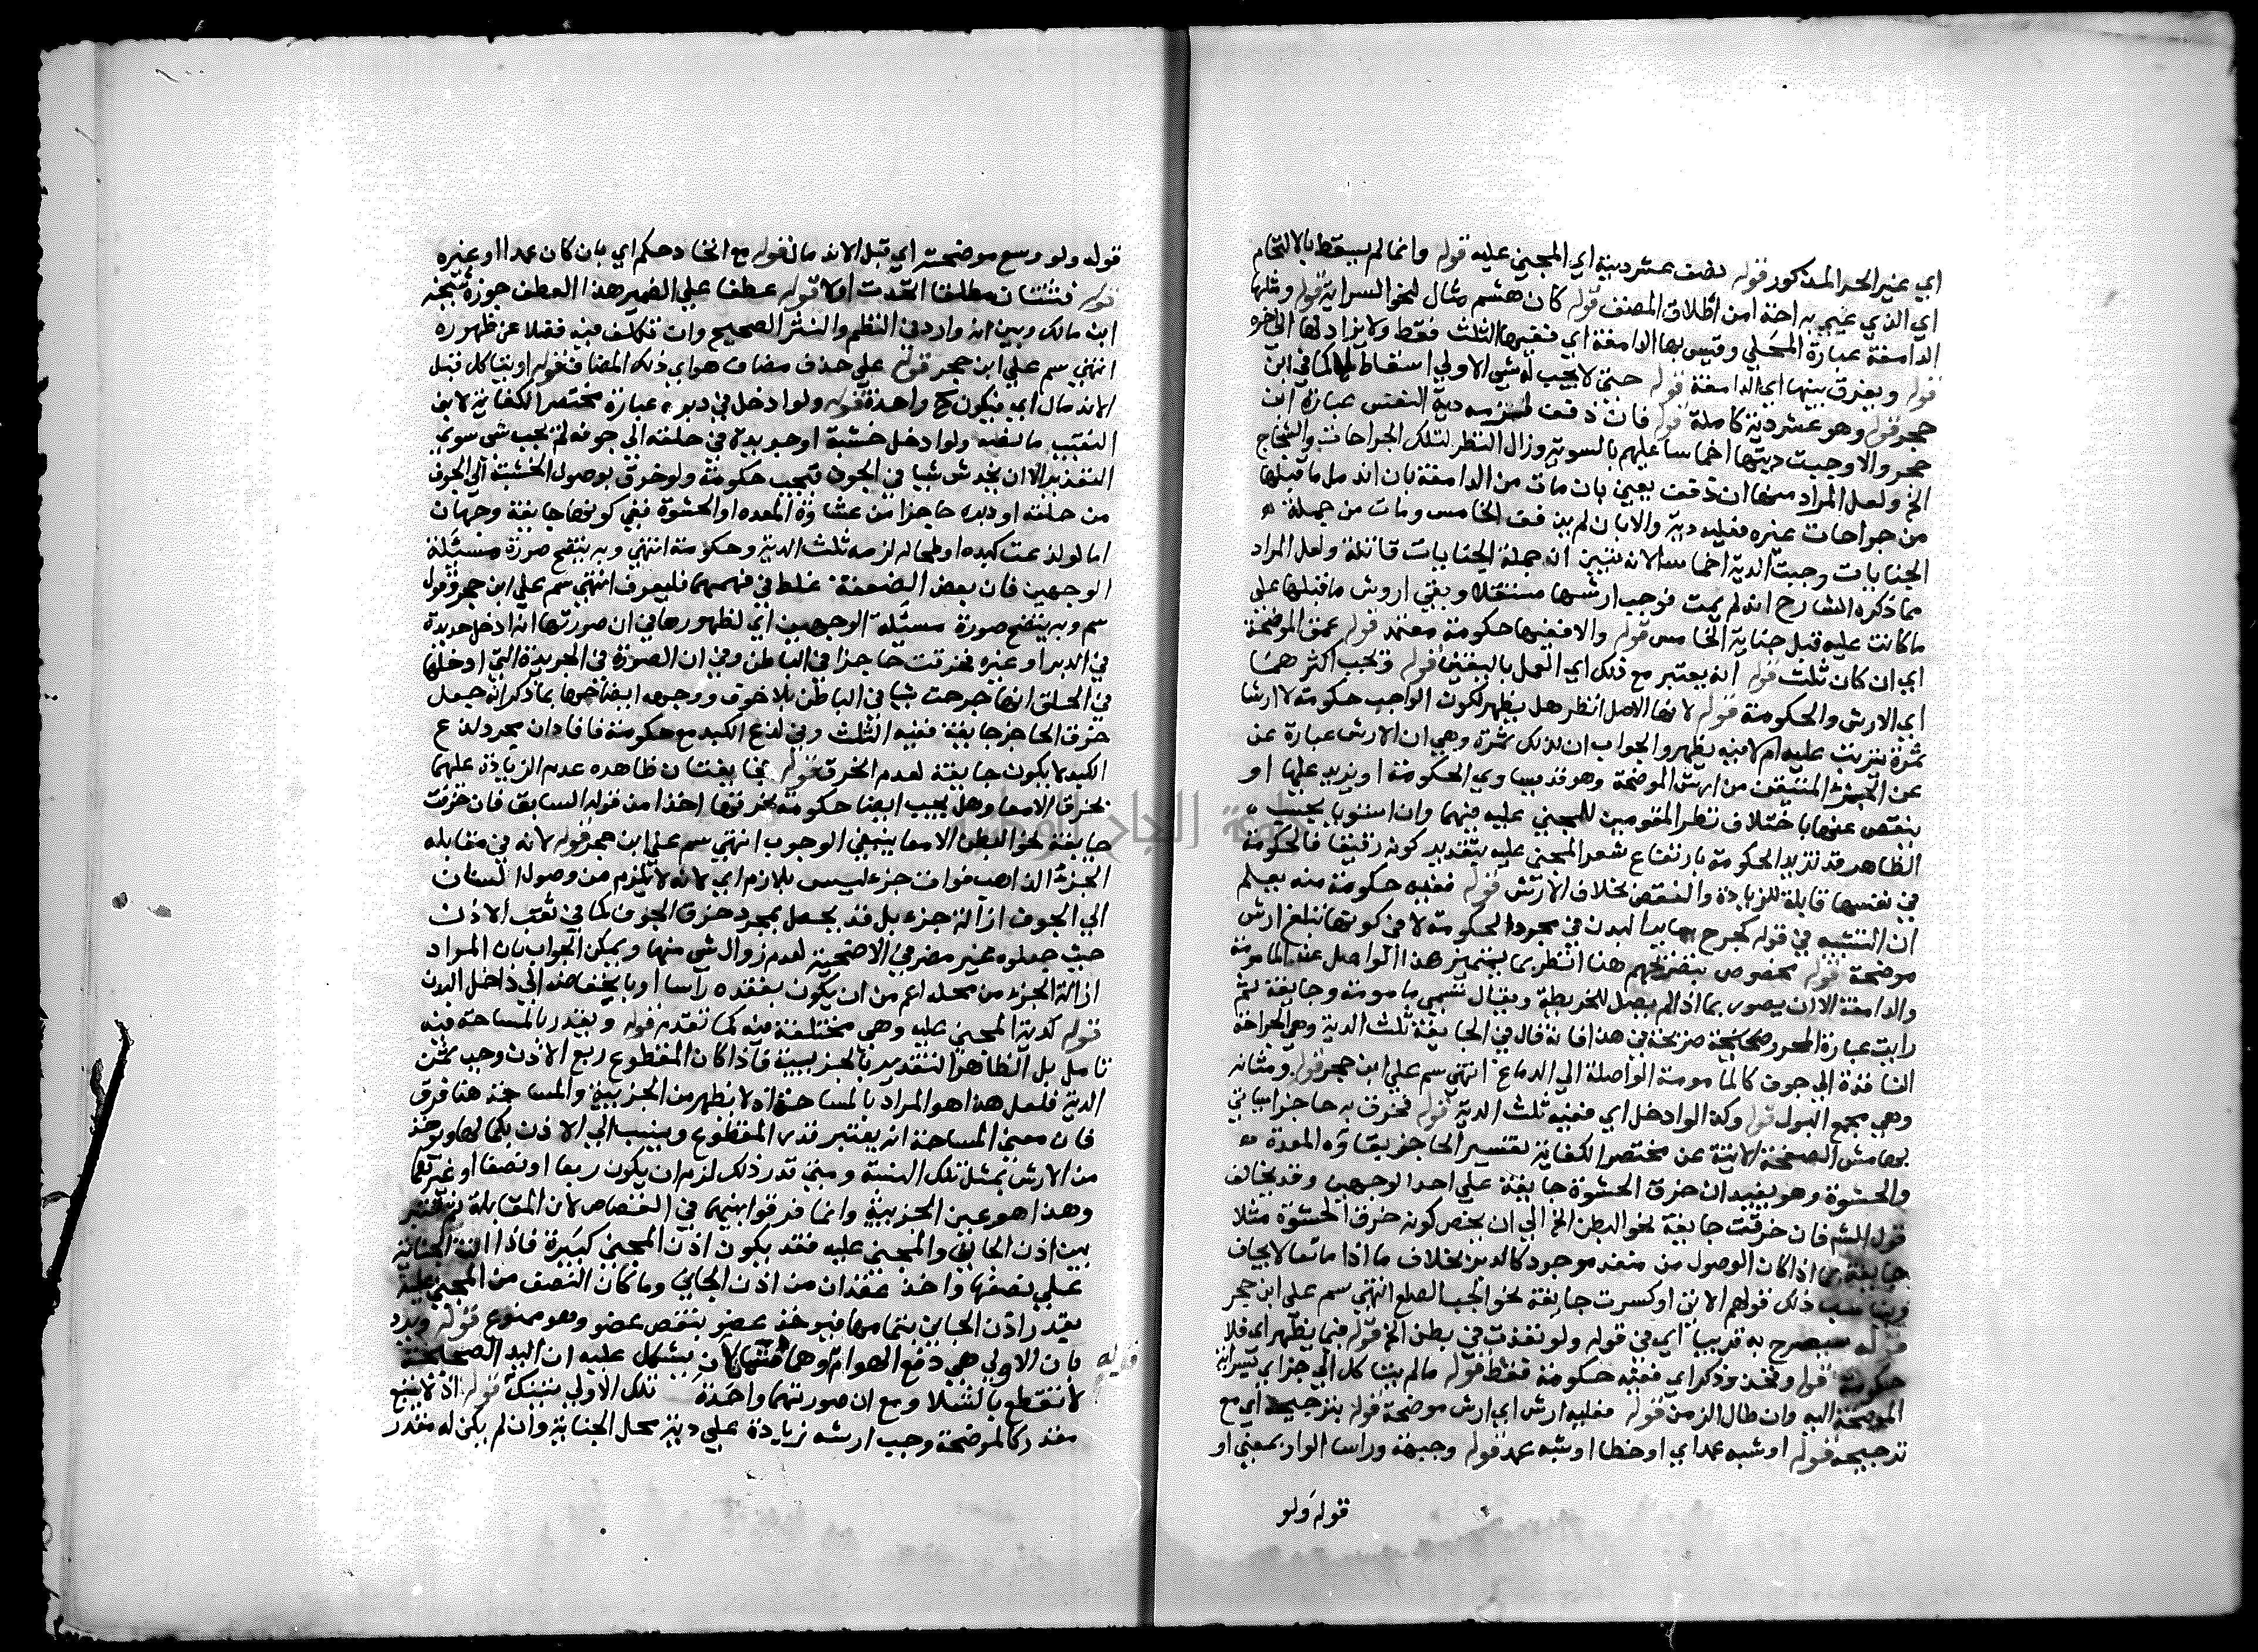 اي غير الحر المذكور قوله نصف عشر دية اي المجني عليه قوله وانما لم يسقط بالالتحام
اي الذي عبر به اخذا من اطلاق المصنف قوله كان هشم مثال لنحو السراية قوله ومثلها
الدامغة عبارة المحلي وقيس بها الدامغة اي ففيها الثلث فقط ولا يزاد لها الى اخره
قوله ويفرق بينها اي الدامغة قوله حتى لا يجب له شي الاولي اسقاط لها كما في ابن
حجر قوله وهو عشر دية كاملة قوله فان ذفف لزمه دية النفس عبارة ابن
حجر والا وجبت ديتها اخماسا عليهم بالسوية وزال النظر لتلك الجراحات والشجاج
الخ ولعل المراد منها ان ذفف يعني بان مات من الدامغة بان اندمل ما قبلها
من جراحات غيره فعليه دية والا بان لم يذفف الخامس ومات من جملة
الجنايات وجبت الدية اخماسا لانه تبين ان جملة الجنايات قاتلة ولعل المراد
مما ذكره الشارح انه لم يمت فوجب ارشها مستقلا وبقي اروش ما قبلها على
ما كانت عليه قبل جناية الخامس قوله والا ففيها حكومة معتمد قوله عمق الموضحة
اي ان كان ثلث قوله انه يعتبر مع ذلك اي العمل باليقين قوله وتجب اكثرهما
اي الارش والحكومة قوله لانها الاصل انظر هل يظهر لكون الواجب حكومة لا ارشا
ثمرة تترتب عليه ام لا فيه يظهر والجواب ان لذلك ثمرة وهي ان الارش عبارة عن
عن الجزء المتيقن من ارش الموضحة وهو قد يساوي الحكومة او يزيد عليها او
ينقص عنها باختلاف نظر المقومين للمجني عليه فيهما وان استويا بحسب
الظاهر قد تزيد الحكومة بارتفاع سعر المجني عليه بتقدير كونه رقيقا فالحكومة
في نفسها قابلة للزيادة والنقص بخلاف الارش قوله ففيه حكومة منه يعلم
ان التشبيه في قوله كجرح سائر البدن في مجرد الحكومة لا في كونها تبلغ ارش
موضحة قوله مخصوص بتصريحهم هنا انظر بما يتميز هذا الواصل عن المامومة
والدامغة الا ان يصور بما اذا لم يصل للخريطة ويقال تسمي مامومة وجايفة ثم
رايت عبارة المحرر صحيحة صريحة في هذا فانه قال في الجايفة ثلث الدية وهي الجراحة
النافذة الي جوف كالمامومة الواصلة الي الدماغ انتهي سم علي ابن حجر قوله ومثانه
وهي مجمع البول قوله وكذا لو ادخل اي ففيه ثلث الدية قوله فخرق به حاجزا سياتي
بهامش الصفحة الاتية عن مختصر الكفاية تفسير الحاجز بغشاوة المعدة
والحشوة وهو يفيد ان خرق الحشوة جايفة علي احد الوجهين وقد يخالف
قول الشم فان خرقت جايفة نحو البطن الخ الي ان يخص كونه خرق الحشوة مثلا
جايفة بما اذا كان الوصول من منفذ موجود كالدبر بخلاف ما اذا
ذلك قولهم الاتي او كسرت جايفة نحو الجنب الضلع انتهي سم علي ابن حجر
قوله سيصرح به قريبا اي في قوله ولو نفذت في بطن الخ قوله فيما يظهر اي فلا
حكومة قوله وفخذ وذكر اي ففيه حكومة فقط قوله ما لم يتاكل الي جزا اي
الموضحة اليه وان طال الزمن قوله فعليه ارش اي ارش موضحة قوله بترجيحه اي مع
ترجيحه قوله او شبه عمد اي او خطا او شبه عمد قوله وجبهة وراسا الواو بمعني او
قوله ولو
قوله ولو وسع موضحته اي قبل الاندمال قوله مع اتحاد حكم اي بان كان عمدا او غيره
قوله فثنتان مطلقا اتحدت ام لا قوله عطفا علي الضمير هذا العطف جوزه شيخه
ابن مالك وبين انه وارد في النظم والنثر الصحيح وان تكلف فيه فضلا عن ظهوره
انتهي سم علي ابن حجر قوله علي حذف مضاف هو اي ذلك المضاف قوله او بتاكل قبل
الاندمال اي فيكون ح واحدة قوله ولو ادخل في دبره عبارة مختصر الكفاية لابن
النقيب ما نصه ولو ادخل خشبة او حديدة في حلقه الي جوفه لم يجب شي سوي
التعزير الا ان يخدش شيا في الجوف فتجب حكومة ولو خرق بوصول الخشبة الي الجوف
من حلقه او دبره حاجزا من غشاوة المعده او الحشوة ففي كونها جايفة وجهان
اما لو لذعت كبده او طحاله لزمه ثلث الدية وحكومة انتهي وبه يتضح صورة مسئلة
الوجهين فان بعض الضعفة غلط في فهمهما فليعرف انتهي سم علي ابن حجر وقول
سم وبه يتضح صورة مسئلة الوجهين اي لظهورها في ان صورتها انه ادخل حديدة
في الدبر او غيره فخرقت حاجزا في الباطن وفي ان الصورة في الحديدة التي ادخلها
في الحلق انها جرحت شيا في الباطن بلا خرق ووجهه ايضاحها بما ذكر انه جعل
خرق الحاجز جايفة ففيه الثلث وفي لذع الكبد مع حكومة فافاد ان مجرد لذع
الكبد لا يكون جايفة لعدم الخرق قوله فجايفتان ظاهره عدم الزيادة عليهما
بخرق الامعا وهل يجب ايضا حكومة بخرقها اخذا من قوله السابق فان خرقت
جايفة نحو البطن الامعا ينبغي الوجوب انتهي سم علي ابن حجر قوله لانه في مقابله
الجزء الذاهب فوات جزء ليس بلازم اي لانه لا يلزم من وصول السنان
الي الجوف ازالة جزء بل قد يحصل بمجرد خرق الجوف كما في ثقب الاذن
حيث جعلوه غير مضر في الاضحية لعدم زوال شي منها ويمكن الجواب بان المراد
ازالة الجزء من محله اعم من ان يكون بفقده راسا او بانخفاضه الي داخل البدن
قوله كدية المجني عليه وهي مختلفة فيه كما تقدم قوله ويقدر بالمساحة فيه
تامل بل الظاهر التقدير بالجزئية فاذا كان المقطوع ربع الاذن وجب ثمن
الدية فلعل هذا هو المراد بالمساحة اذ لا يظهر من الجزئية والمساحة هنا فرق
فان معني المساحة ان يعتبر قدر المقطوع وينسب الي الاذن بكمالها ويوخذ
من الارش بمثل تلك النسبة ومتي قدر ذلك لزم ان يكون ربعا او نصفا او غيرهما
وهذا هو عين الجزئية وانما فرقوا بينهما في القصاص لان المقابلة ثم تعتبر
بين اذن الجاني والمجني عليه فقد يكون اذن المجني كبيرة فاذا
علي نصفها واخذ مقداره من اذن الجاني وما كان النصف من المجني عليه
بقدر اذن الجاني بتمامها فيوخذ عضو بنقص عضو وهو ممنوع قوله ويرد
بان الاولي هي دفع الهوام وها يشكل عليه ان اليد الصحيحة
قوله
لا تقطع بالشلا ومع ان صورتهما واحدة تلك الاولي قوله اذ لا يتبع
مقدر كالموضحة وجب ارشه زيادة علي دية محل الجناية وان لم يكن له مقدر